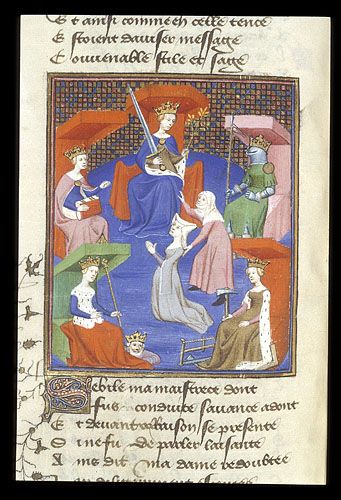 Et ainsi comme en celle tence
Estoient daviser message
Couvenable stile et sage
Sebile ma maistrece dont
Fus conduite savance adont
Et devant raison se presente
Si ne fu de parler lassante
Ains dit ma dame redoubtee